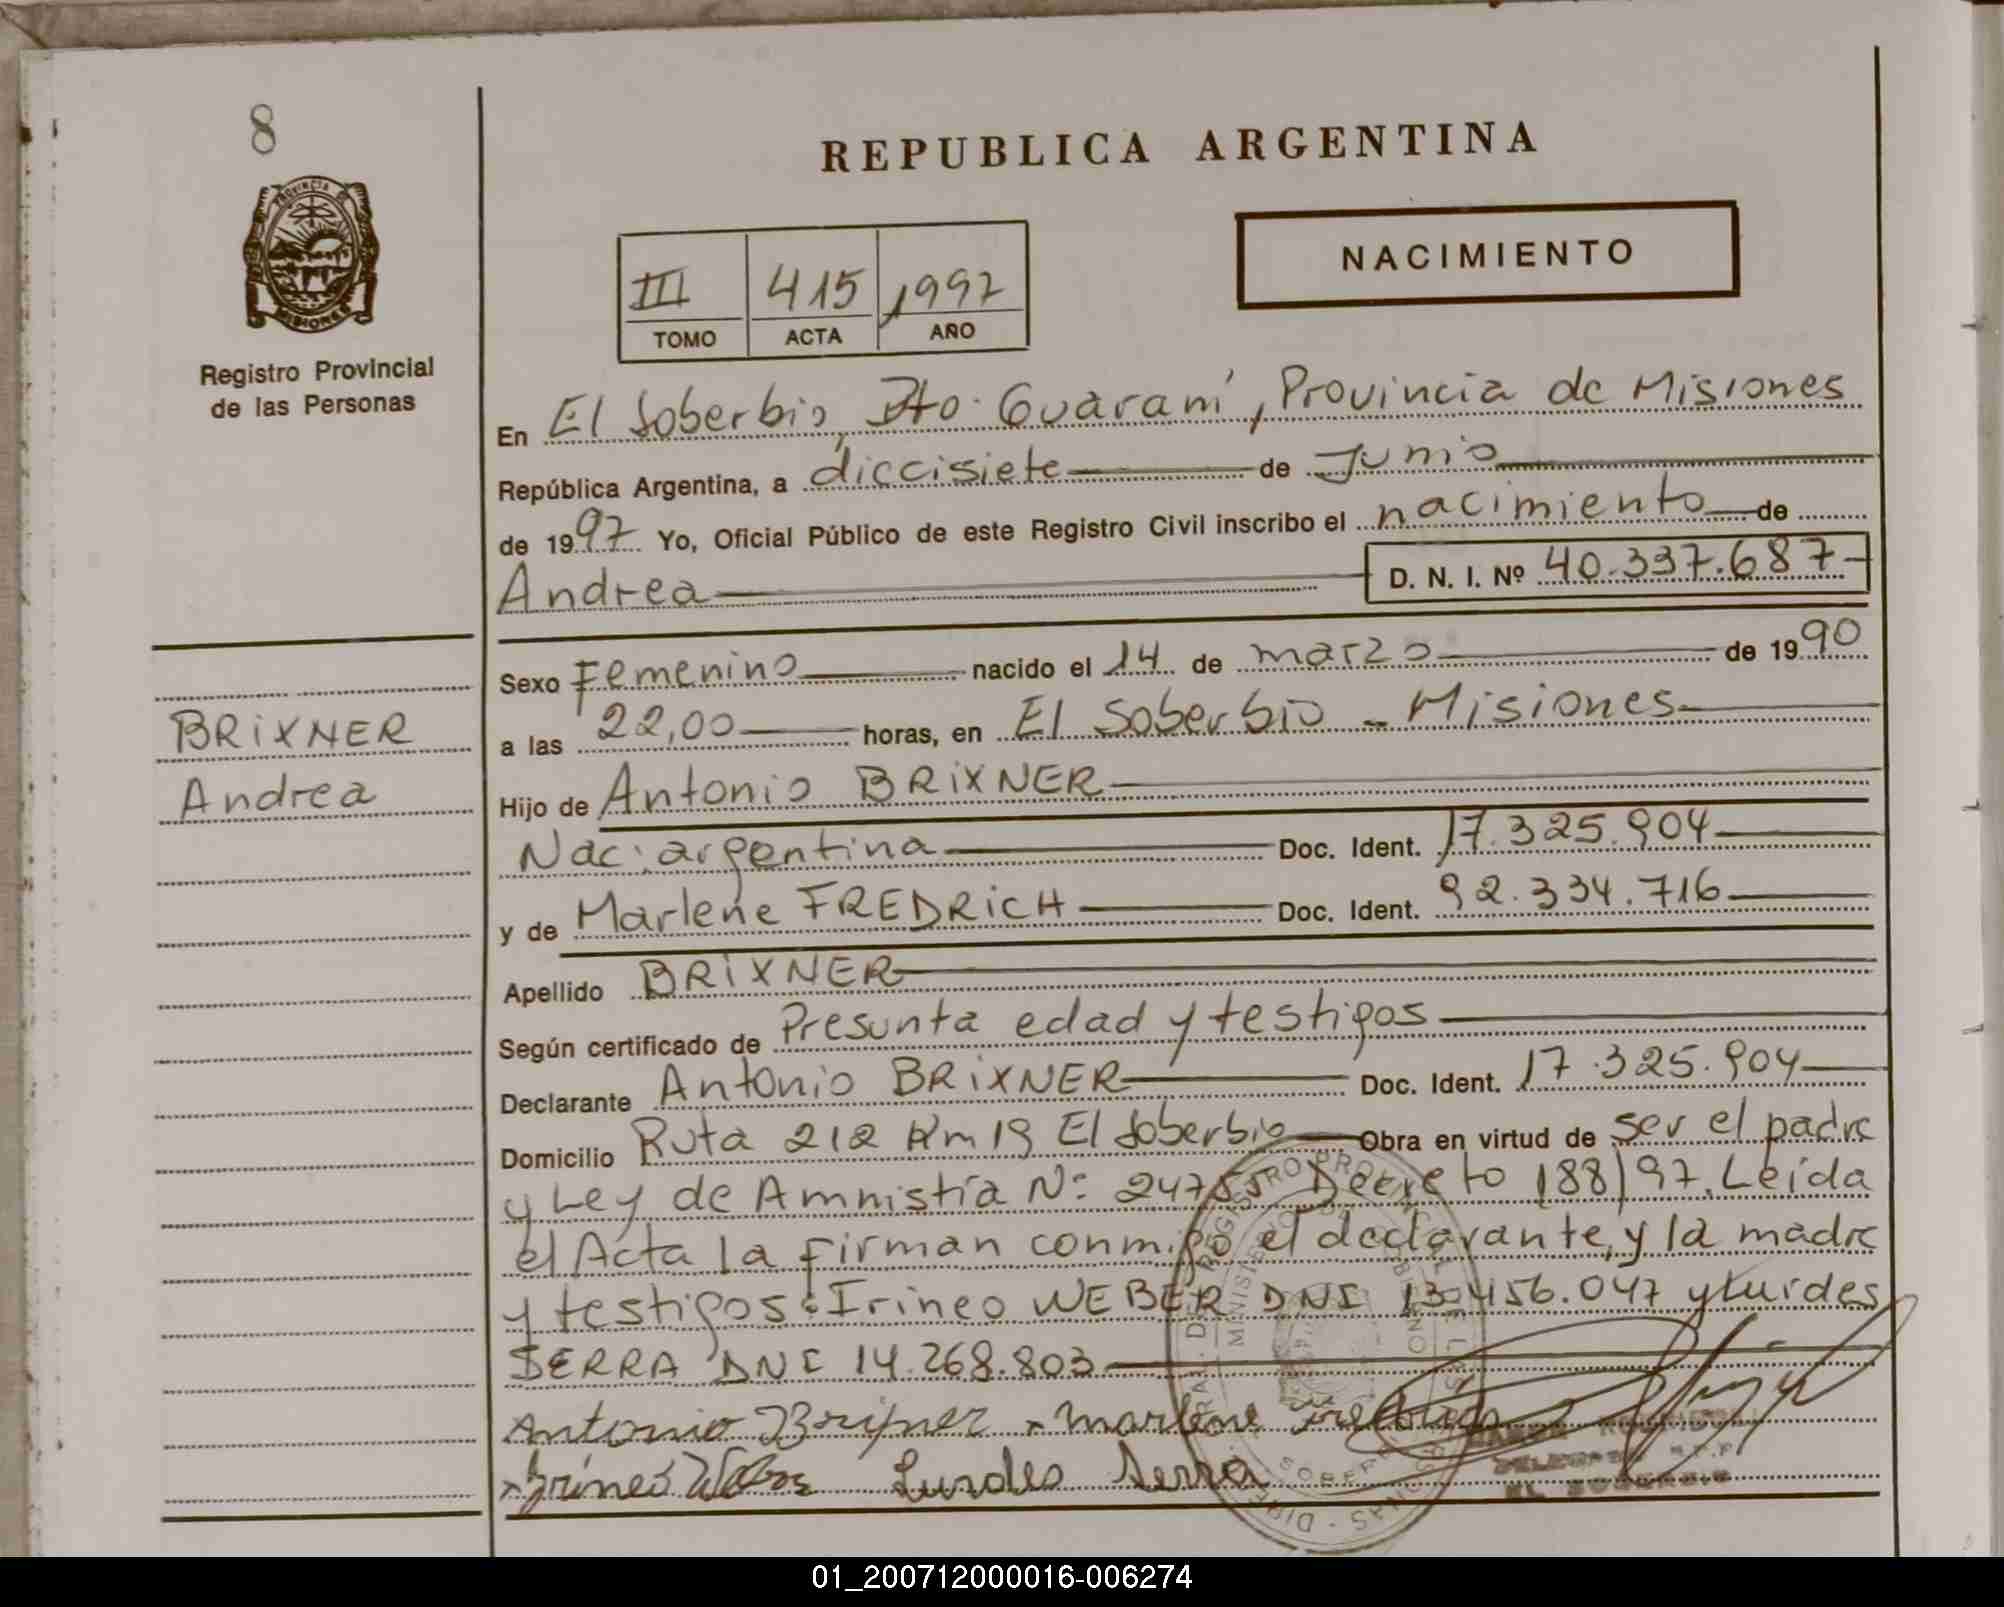 8
PROVINCIA DE
MISIONES
Registro Provincial
de las Personas
REPUBLICA ARGENTINA
NACIMIENTO
III 415 1997
TOMO ACTA AÑO
En El Soberbio, Dto. Guaraní, Provincia de Misiones
República Argentina, a diecisiete de Junio
de 1997 Yo, Oficial Público de este Registro Civil inscribo el nacimiento de
Andrea D. N. I. Nº 40.337.687
BRiXNER
Andrea
Sexo Femenino nacido el 14 de marzo de 1990
a las 22,00 horas, en El Soberbio - Misiones
Hijo de Antonio BRiXNER
Nac: argentina Doc. Ident. 17.325.904
y de Marlene FREDRiCH Doc. Ident. 92.334.716
Apellido BRiXNER
Según certificado de Presunta edad y testigos
Declarante Antonio BRiXNER Doc. Ident. 17.325.904
Domicilio Ruta 212 Km 19 El Soberbio Obra en virtud de ser el padre
y Ley de Amnistía Nº 24755 Decreto 188/97. Leída
el Acta la firman conmigo el declarante, y la madre
y testigos: Irineo WEBER DNI 13.456.047 y Lurdes
SERRA DNI 14.268.803
Antonio Brixner x Marlene Fredrich
x Irineo Weber Lurdes Serra
EL SOBERBIO
01_200712000016-006274